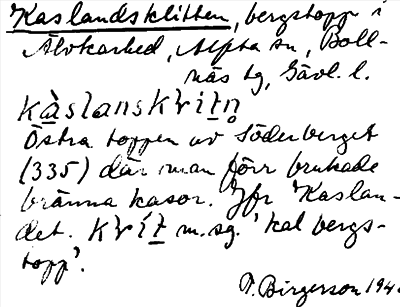 Kaslandsklitten, bergstopp i
Älvkarhed, Alfta sn, Boll-
näs tg, Gävl. l.
kàslanskritn̥
Östra toppen av Söderberget
(335) där man förr brukade
bränna kasor. Jfr Kaslan-
det. krít m.sg. 'kal bergs-
topp'.
Birgerson